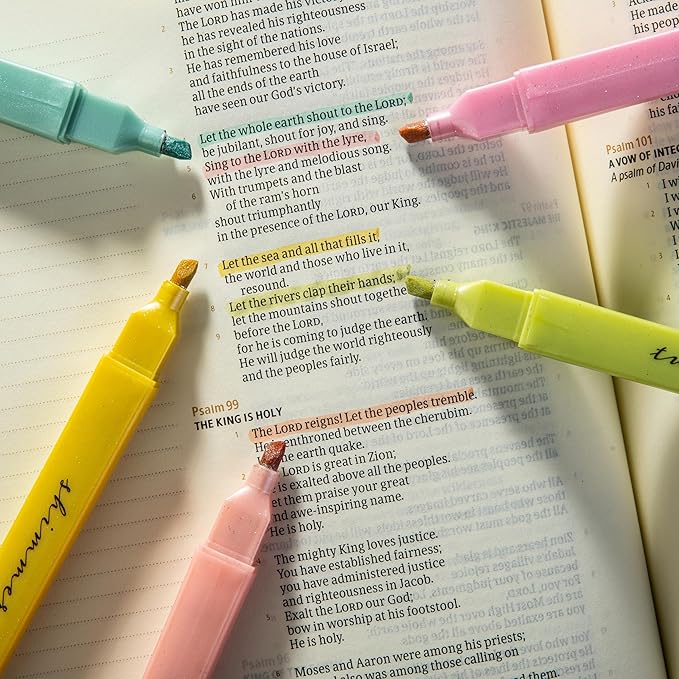 have won him
2
The LORD has made his victory
he has revealed his righteousness
in the sight of the nations.
3
He has remembered his love
and faithfulness to the house of Israel;
all the ends of the earth
have seen our God's victory.
Let the whole earth shout to the LORD;
be jubilant, shout for joy, and sing.
5
Sing to the LORD with the lyre,
with the lyre and melodious song.
6
With trumpets and the blast
of the ram's horn
shout triumphantly
in the presence of the LORD, our King.
7
Let the sea and all that fills it,
the world and those who live in it,
resound.
8
Let the rivers clap their hands;
let the mountains shout together
9
before the LORD,
for he is coming to judge the earth.
He will judge the world righteously
and the peoples fairly.
Psalm 99
THE KING IS HOLY
1
The LORD reigns! Let the peoples tremble.
He enthroned between the cherubim.
the earth quake.
LORD is great in Zion;
is exalted above all the peoples.
et them praise your great
and awe-inspiring name.
He is holy.
The mighty King loves justice.
You have established fairness;
you have administered justice
and righteousness in Jacob.
5
Exalt the LORD our God;
bow in worship at his footstool.
He is holy.
6
Moses and Aaron were among his priests;
also was among those calling on
He made
his people
Psalm 101
A VOW OF INTEG
A psalm of Davi
1
I wi
2
shimmer